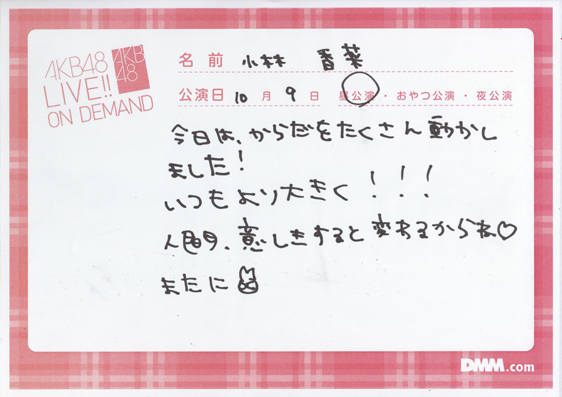 AKB48
LIVE!!
ON DEMAND
AKB
48
名前 小林 香菜
公演日 10月9日 昼公演・おやつ公演・夜公演
今日は、からだをたくさん動かし
ました!
いつもより大きく!!!
人間、意しきすると変わるからね♡
またに
DMM.com